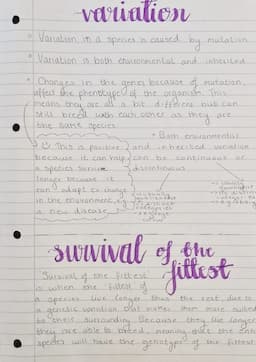 variation
• Variation in a species is caused by mutation
• Variation is both environmental and inherited
• Changes in the genes because of mutation,
affect the phenotype of the organism. This
means they are all a bit different but can
still breed with each other as they are
the same species
• Both environmental
This is positive
and inherited variation
because it can help
can be continuous or
a species survive
discontinuous
longer because it
can adapt to change
in the environment, e.g
a new disease
categories
survival of the
fittest
Survival of the fittest
is when the fittest of
a species live longer than the rest due to
a genetic variation that makes them more suited
to their surrounding. Because they live longer
they are able to breed, meaning once the
species will have the genotype of the fittest